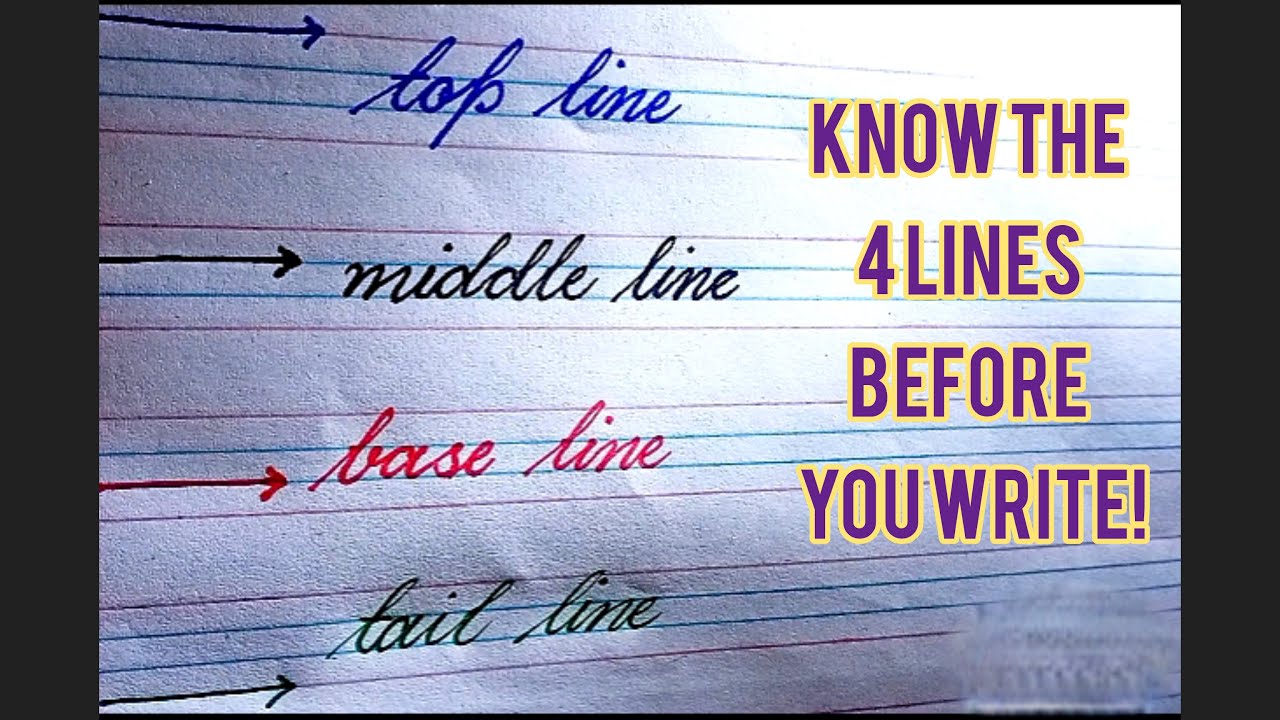 top line
middle line
base line
tail line
KNOW THE
4 LINES
BEFORE
YOU WRITE!